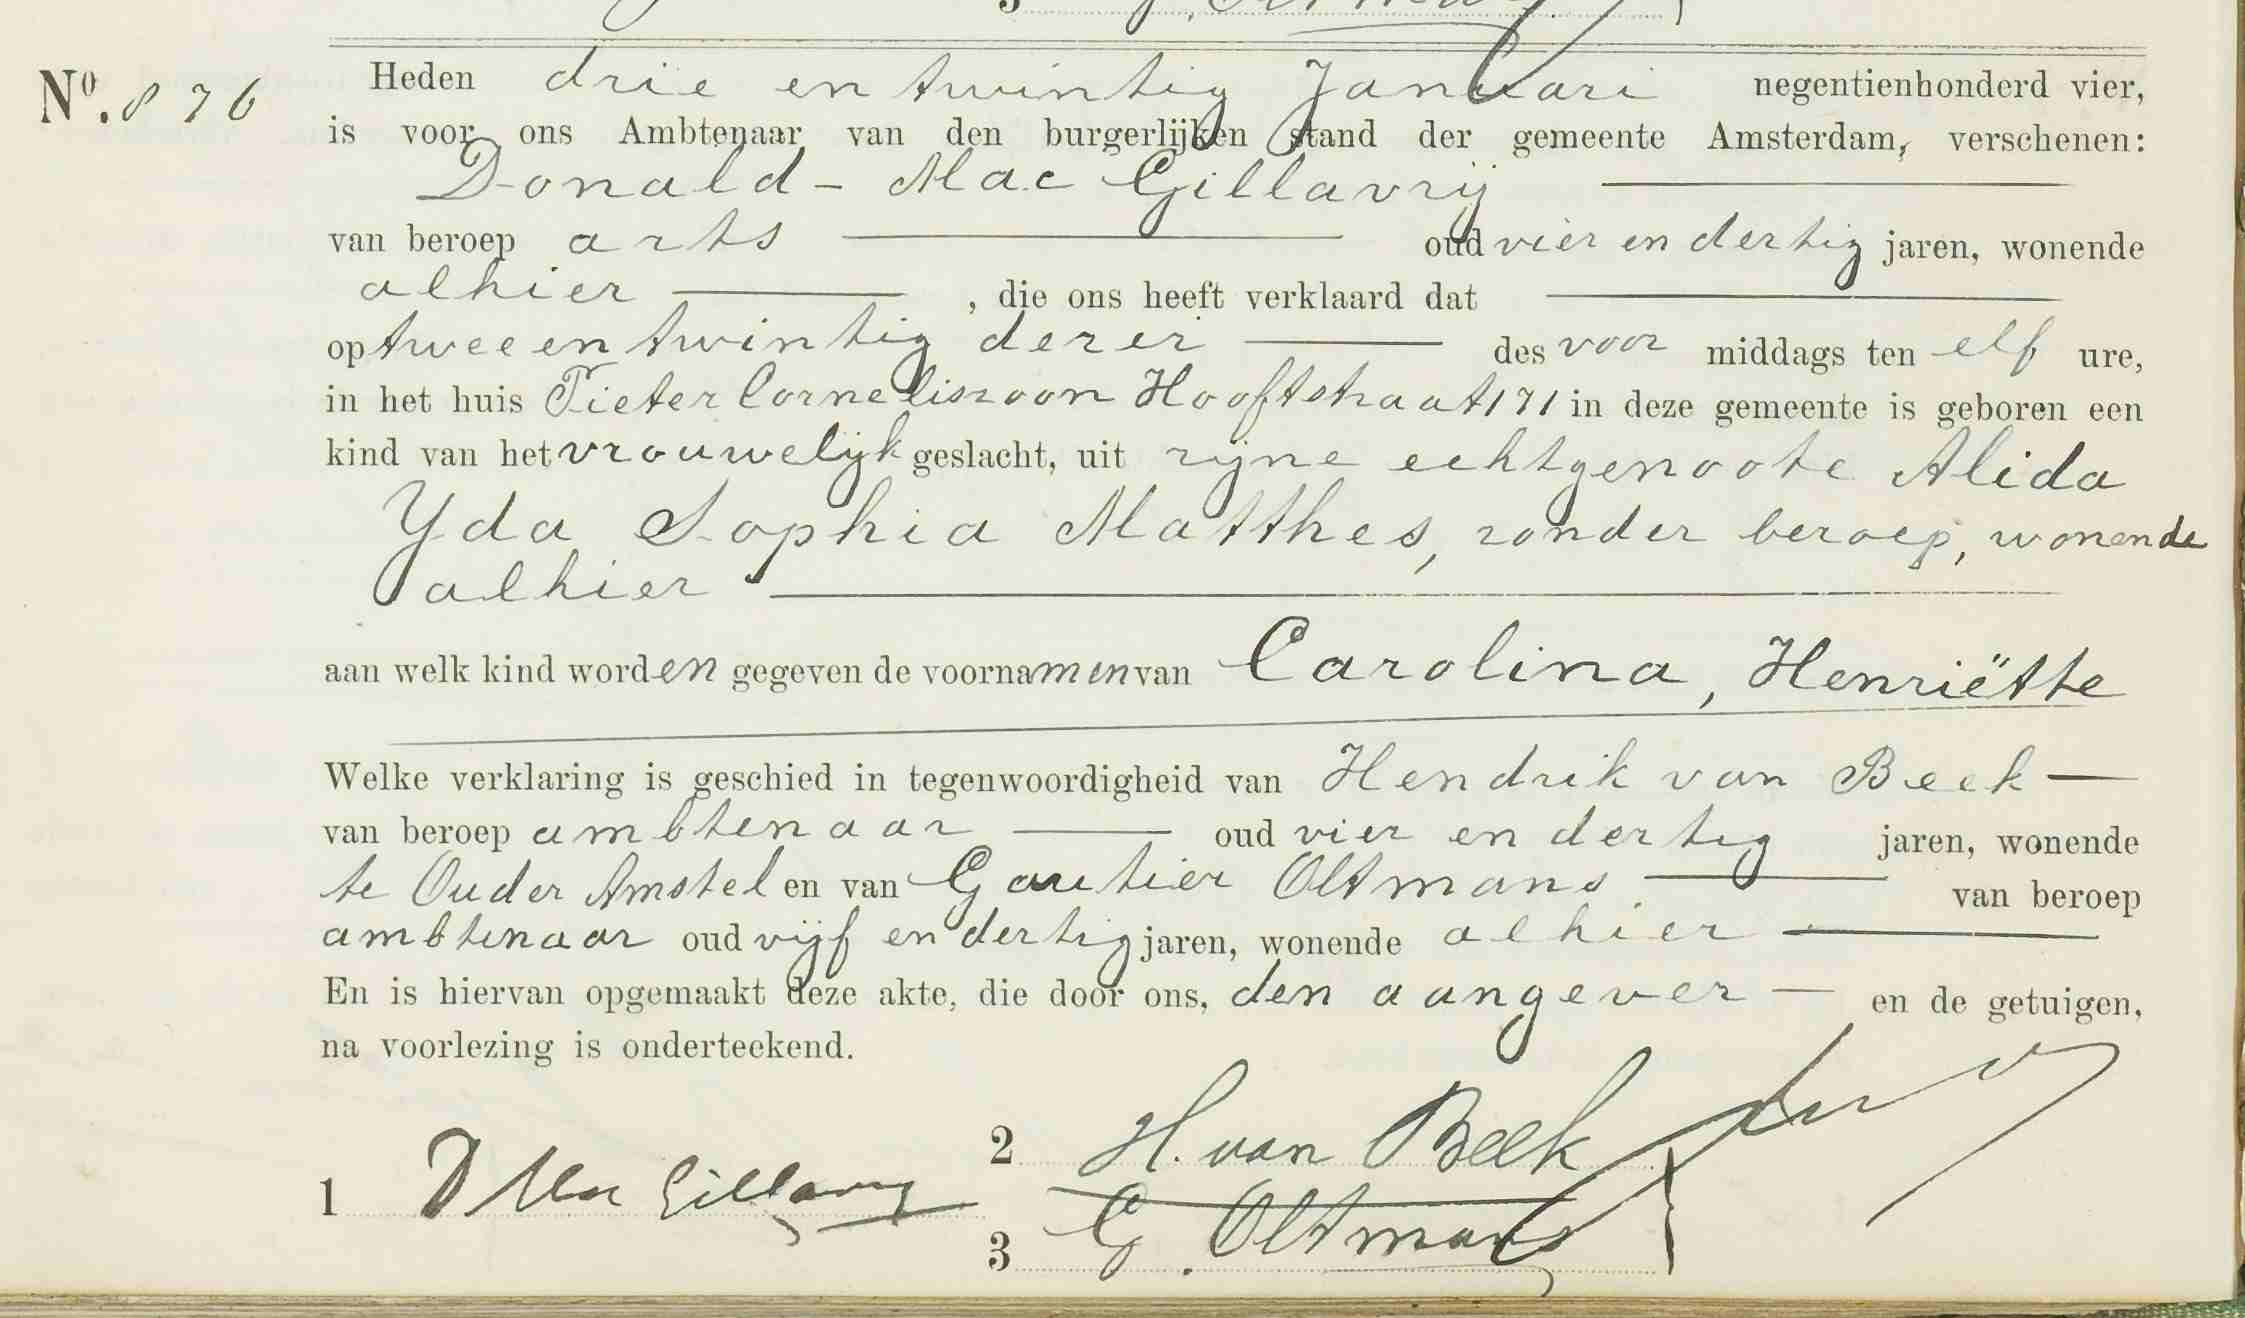 3 G. Oltmans
No. 876 Heden drie en twintig Januari negentienhonderd vier,
is voor ons Ambtenaar van den burgerlijken stand der gemeente Amsterdam, verschenen:
Donald Mac Gillavrij
van beroep arts oud vier en dertig jaren, wonende
alhier , die ons heeft verklaard dat
op twee en twintig dezer des voor middags ten elf ure,
in het huis Pieter Corneliszoon Hooftstraat 171 in deze gemeente is geboren een
kind van het vrouwelijk geslacht, uit zijne echtgenoote Alida
Yda Sophia Matthes, zonder beroep, wonende
alhier
aan welk kind worden gegeven de voornamen van Carolina, Henriëtte
Welke verklaring is geschied in tegenwoordigheid van Hendrik van Beek
van beroep ambtenaar oud vier en dertig jaren, wonende
te Ouder Amstel en van Gautier Oltmans van beroep
ambtenaar oud vijf en dertig jaren, wonende alhier
En is hiervan opgemaakt deze akte, die door ons, den aangever en de getuigen,
na voorlezing is onderteekend.
1 D Mac Gillavry
2 H. van Beek
3 G. Oltmans